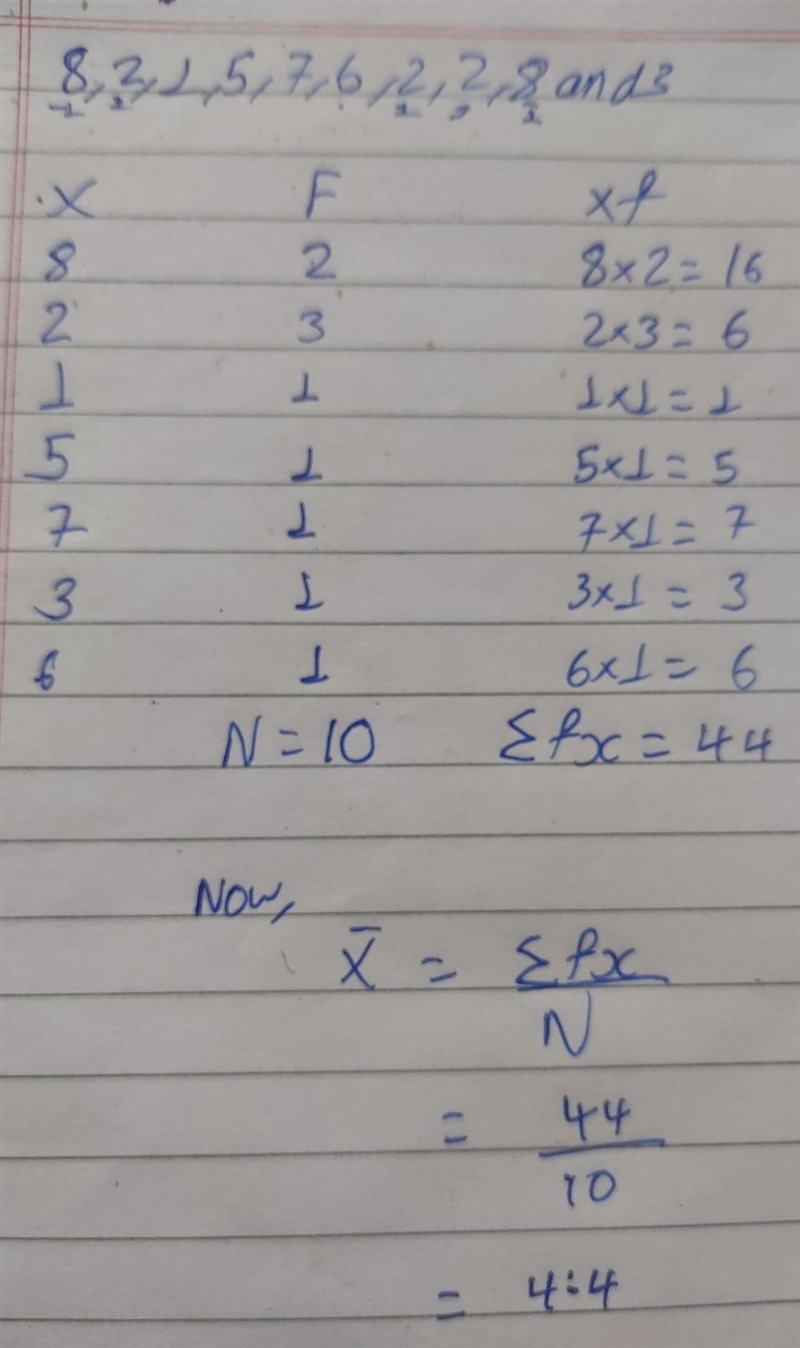 8, 2, 1, 5, 7, 6, 2, 2, 8 and 3
X F xf
8 2 8×2 = 16
2 3 2×3 = 6
1 1 1×1 = 1
5 1 5×1 = 5
7 1 7×1 = 7
3 1 3×1 = 3
6 1 6×1 = 6
N = 10 Σfx = 44
Now,
X̄ = Σfx
N
= 44
10
= 4.4